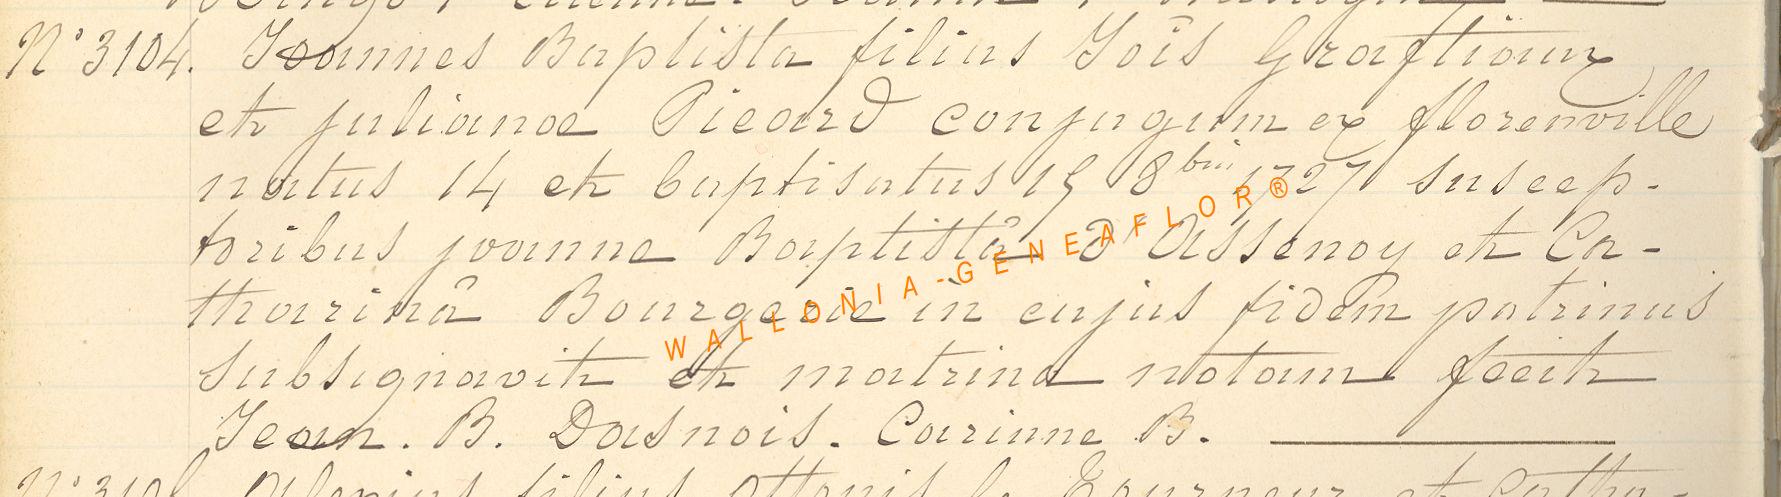 N° 3104. Joannes Baptista filius Joîs Graftiaux
et julianae Picard conjugum ex florenville
natus 14 et baptisatus 15 8bris 1727 suscep-
toribus joanne Baptistâ D'Assenoy et Ca-
tharinâ Bourgeois in cujus fidem patrinus
subsignavit et matrina notam fecit
Jean. B. Dasnois. Carinne B.
WALLONIA-GENEAFLOR®
filius Ottonis le